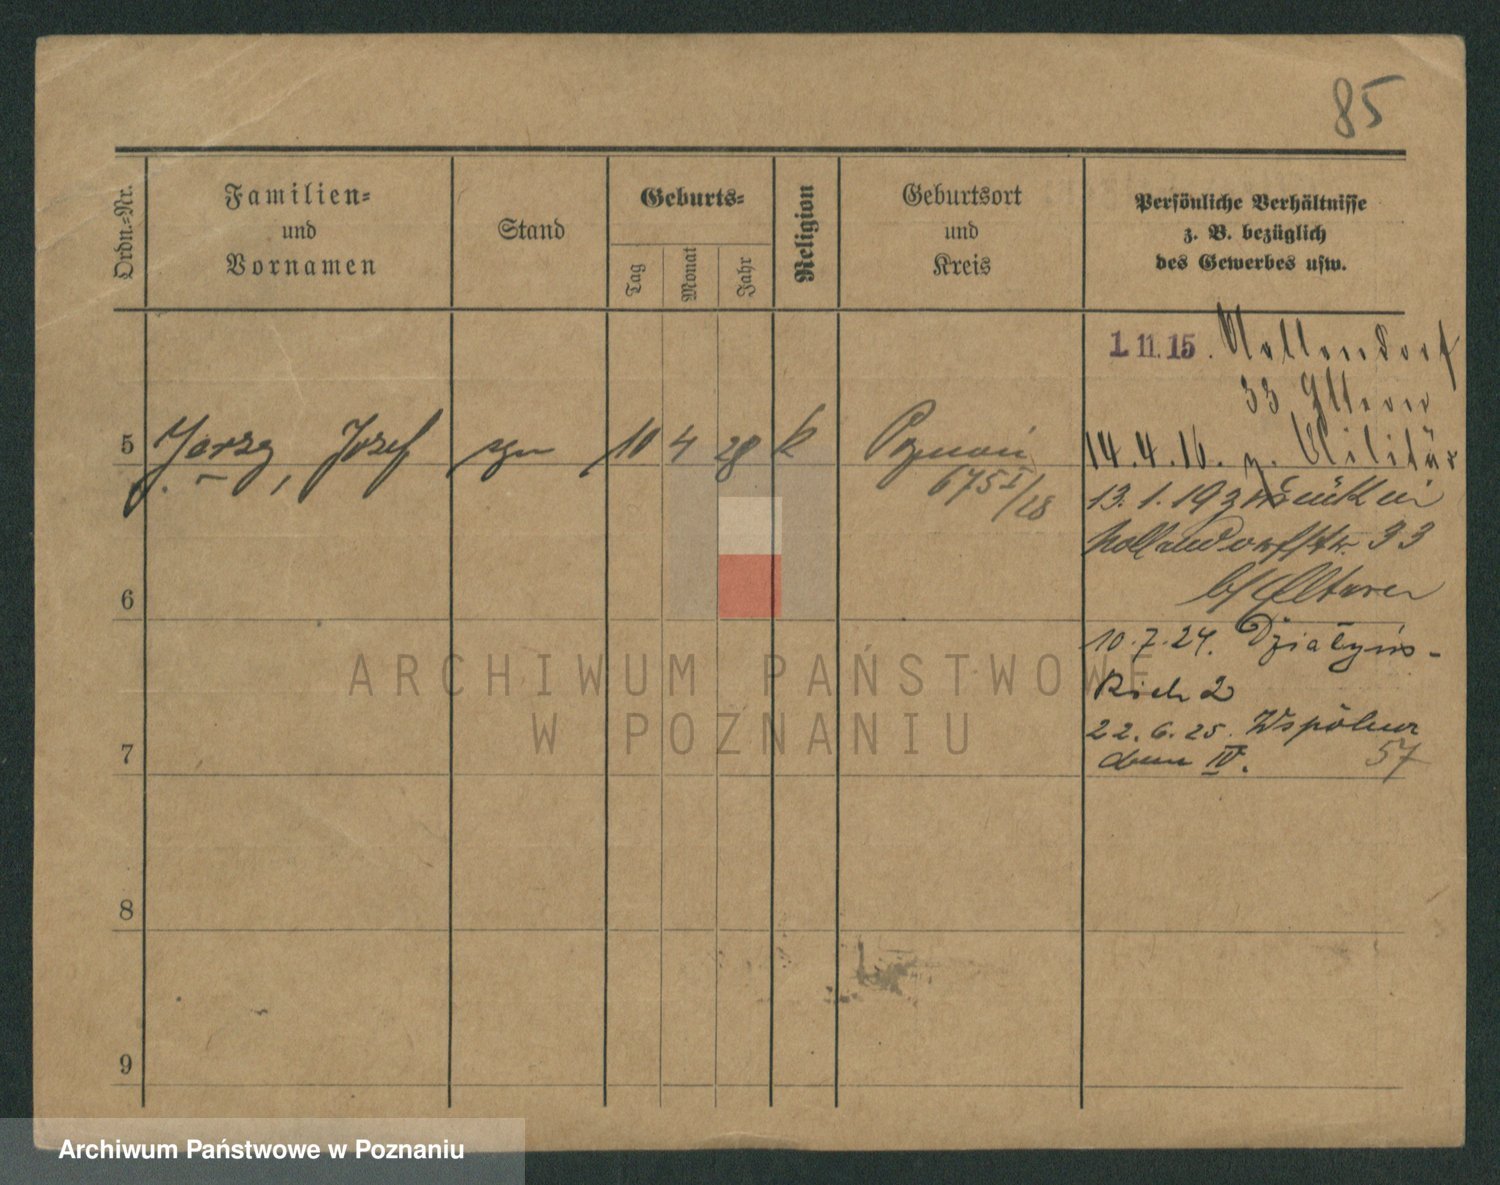 85
Ordn.-Nr.
Familien-
und
Vornamen
Stand
Geburts-
Tag
Monat
Jahr
Religion
Geburtsort
und
Kreis
Persönliche Verhältnisse
z. B. bezüglich
des Gewerbes usw.
1.11.15. Nollendorf
33 Eltern
14.4.16. z. Militär
13.1.19 zurück in
Nollendorfstr. 33
b/Eltern
10.7.24. Działyńs-
kich 2
22.6.25. Wspólna
dom IV. 57
5 Jarzy, Józef syn 10 4 28 k Poznań
675 I/28
6
7
8
9
ARCHIWUM PAŃSTWOWE
W POZNANIU
Archiwum Państwowe w Poznaniu